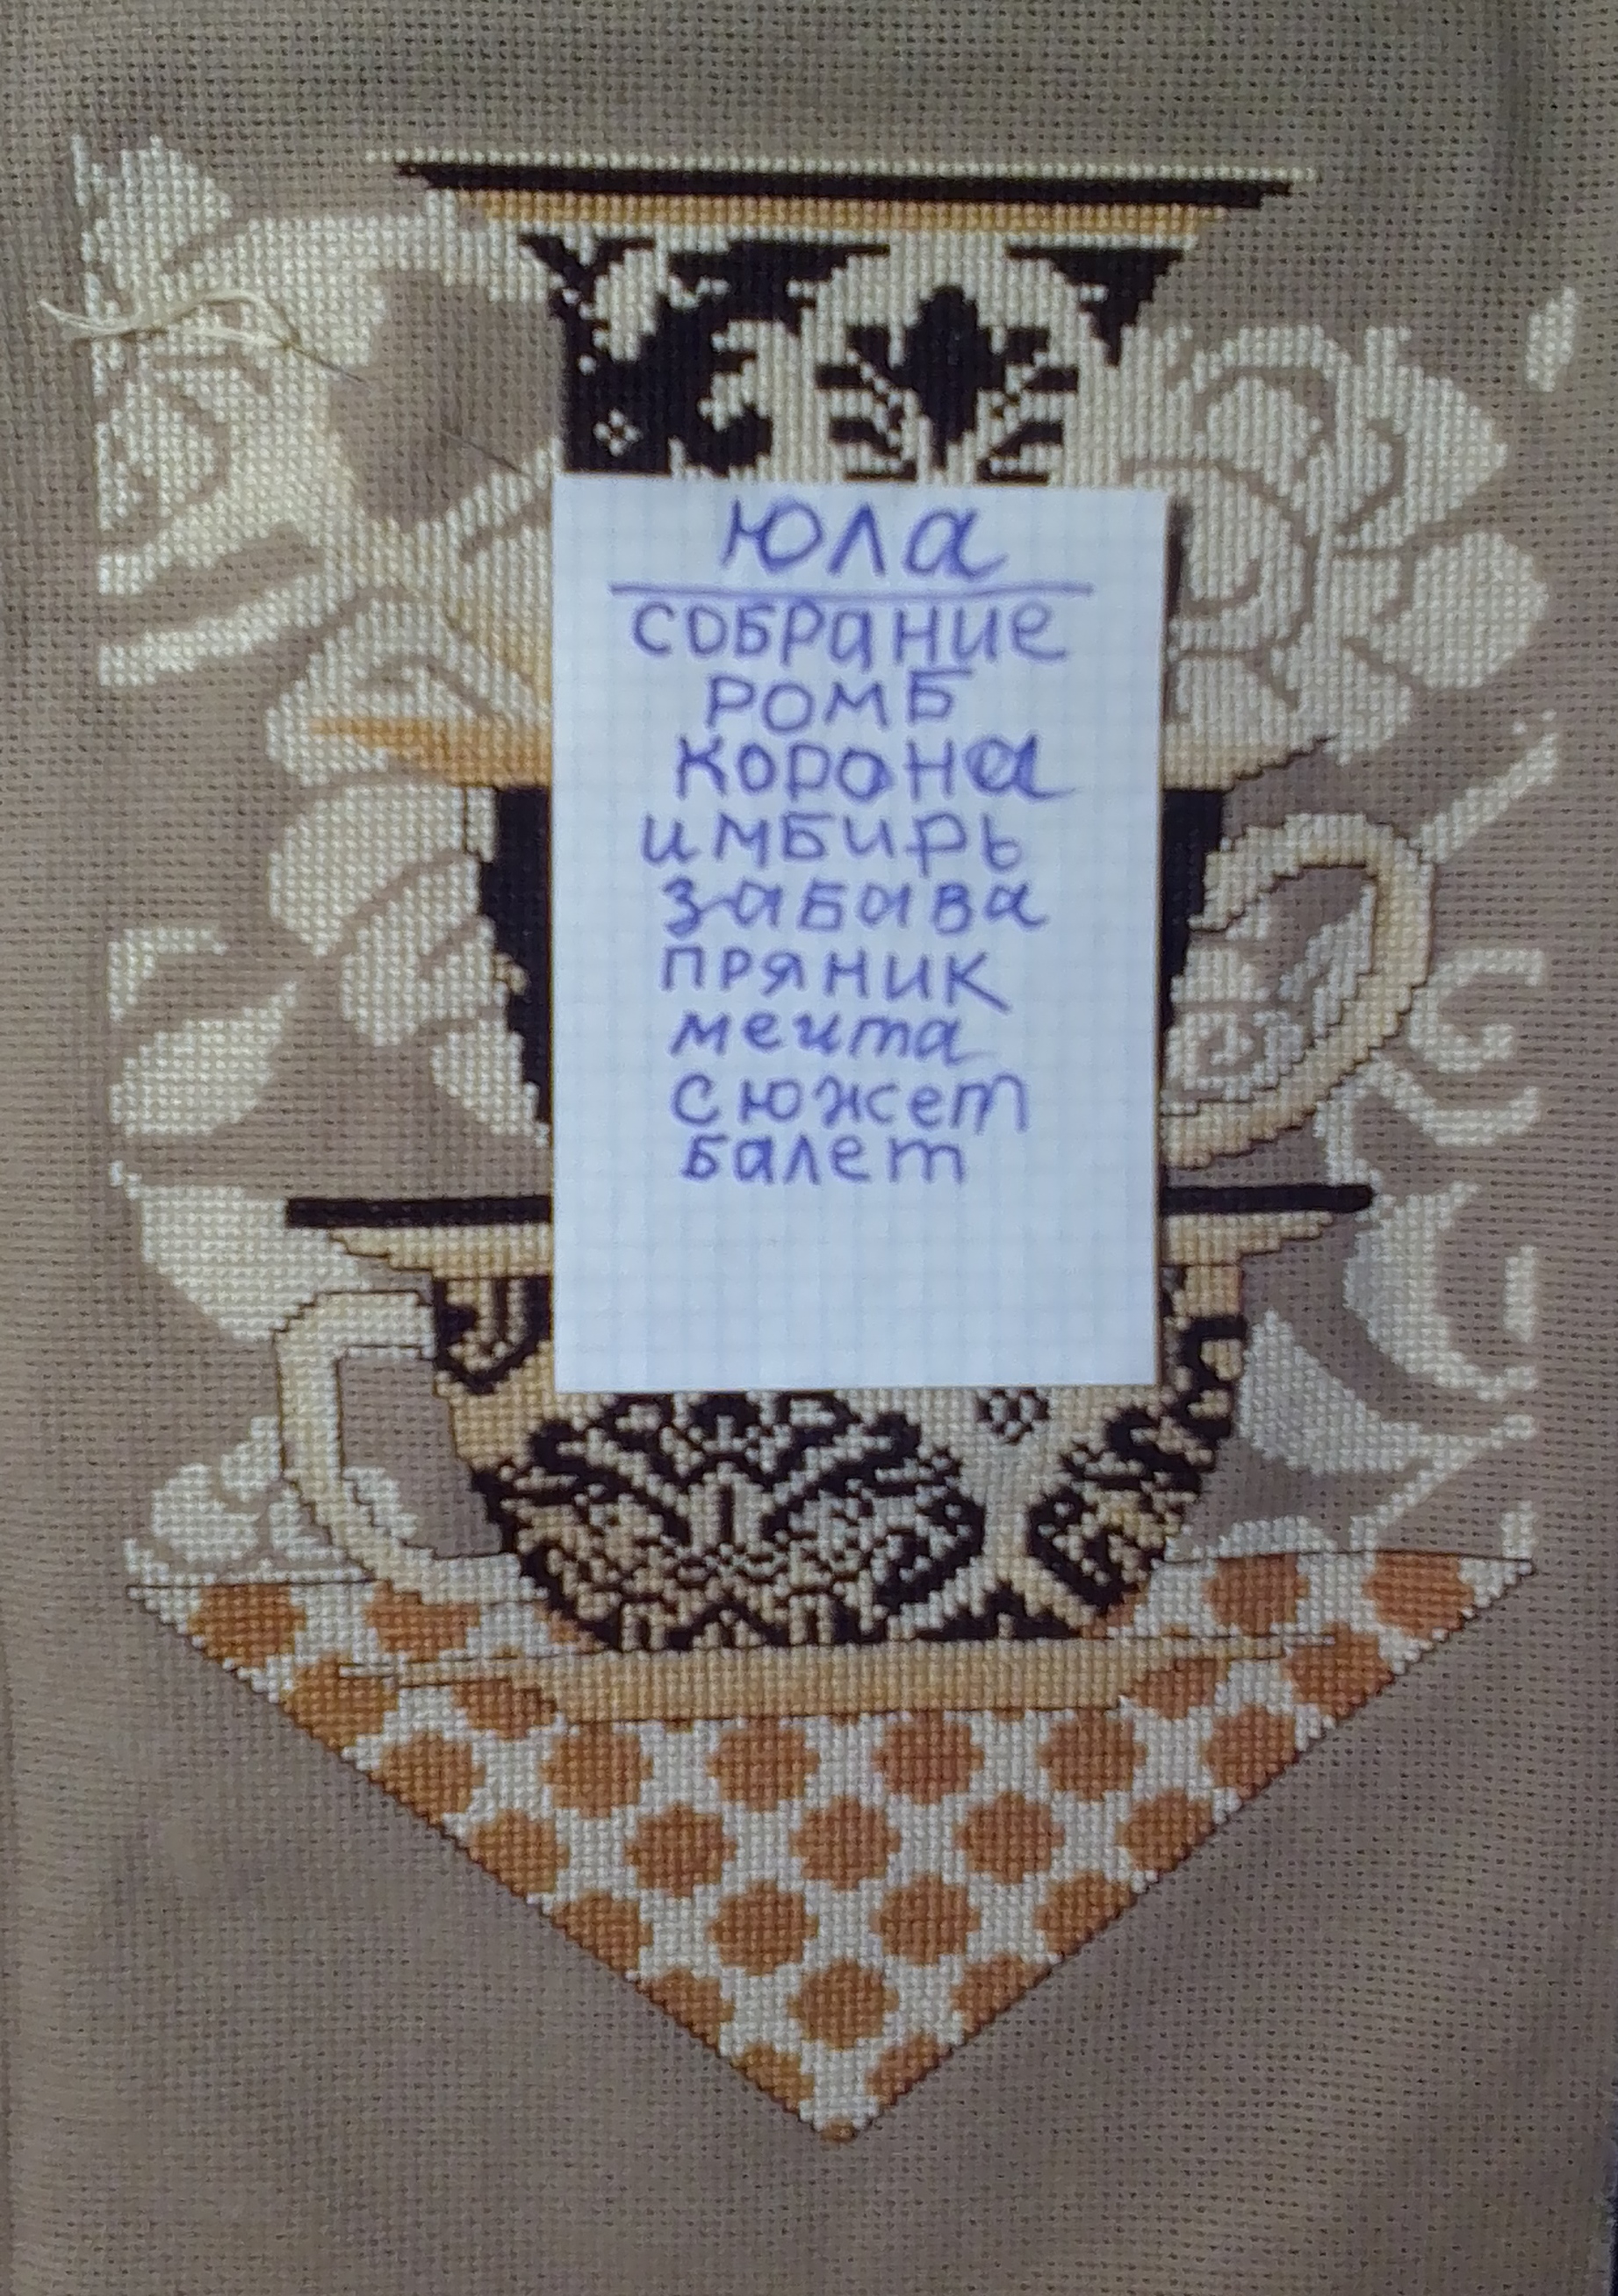 юла
собрание
ромб
корона
имбирь
забава
пряник
мечта
сюжет
балет